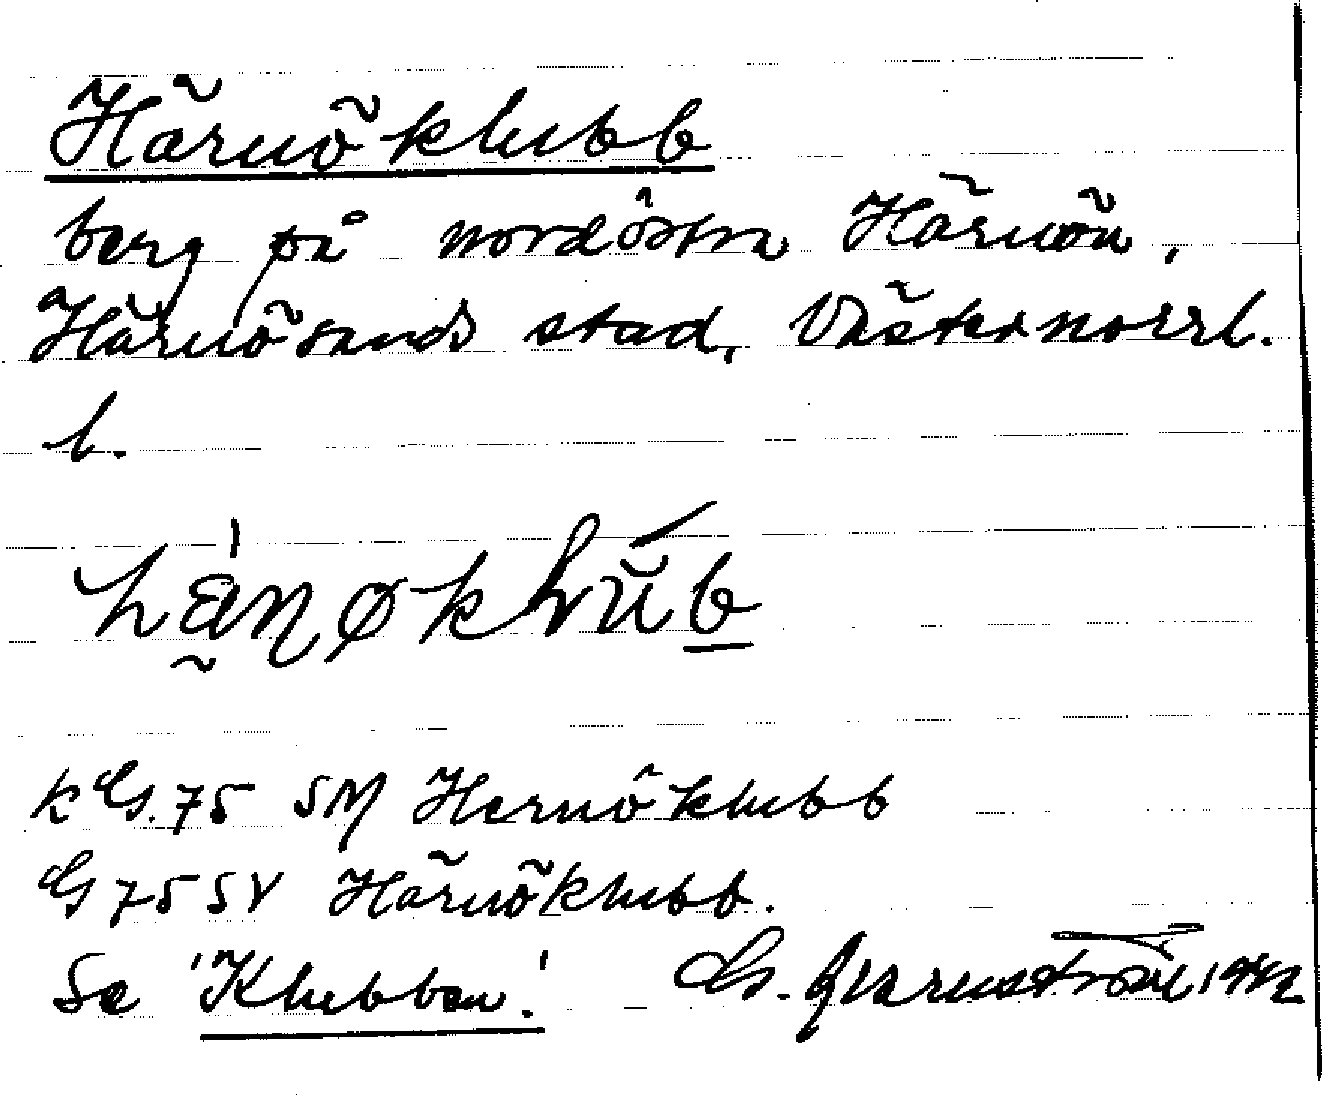 Härnöklubb
berg på nordöstra Härnön,
Härnösands stad, Västernorrl.
l.
hä̰ṇøklub
k G. 75 SM Hernöklubb
G 75 SV Härnöklubb.
Se 'Klubben'.